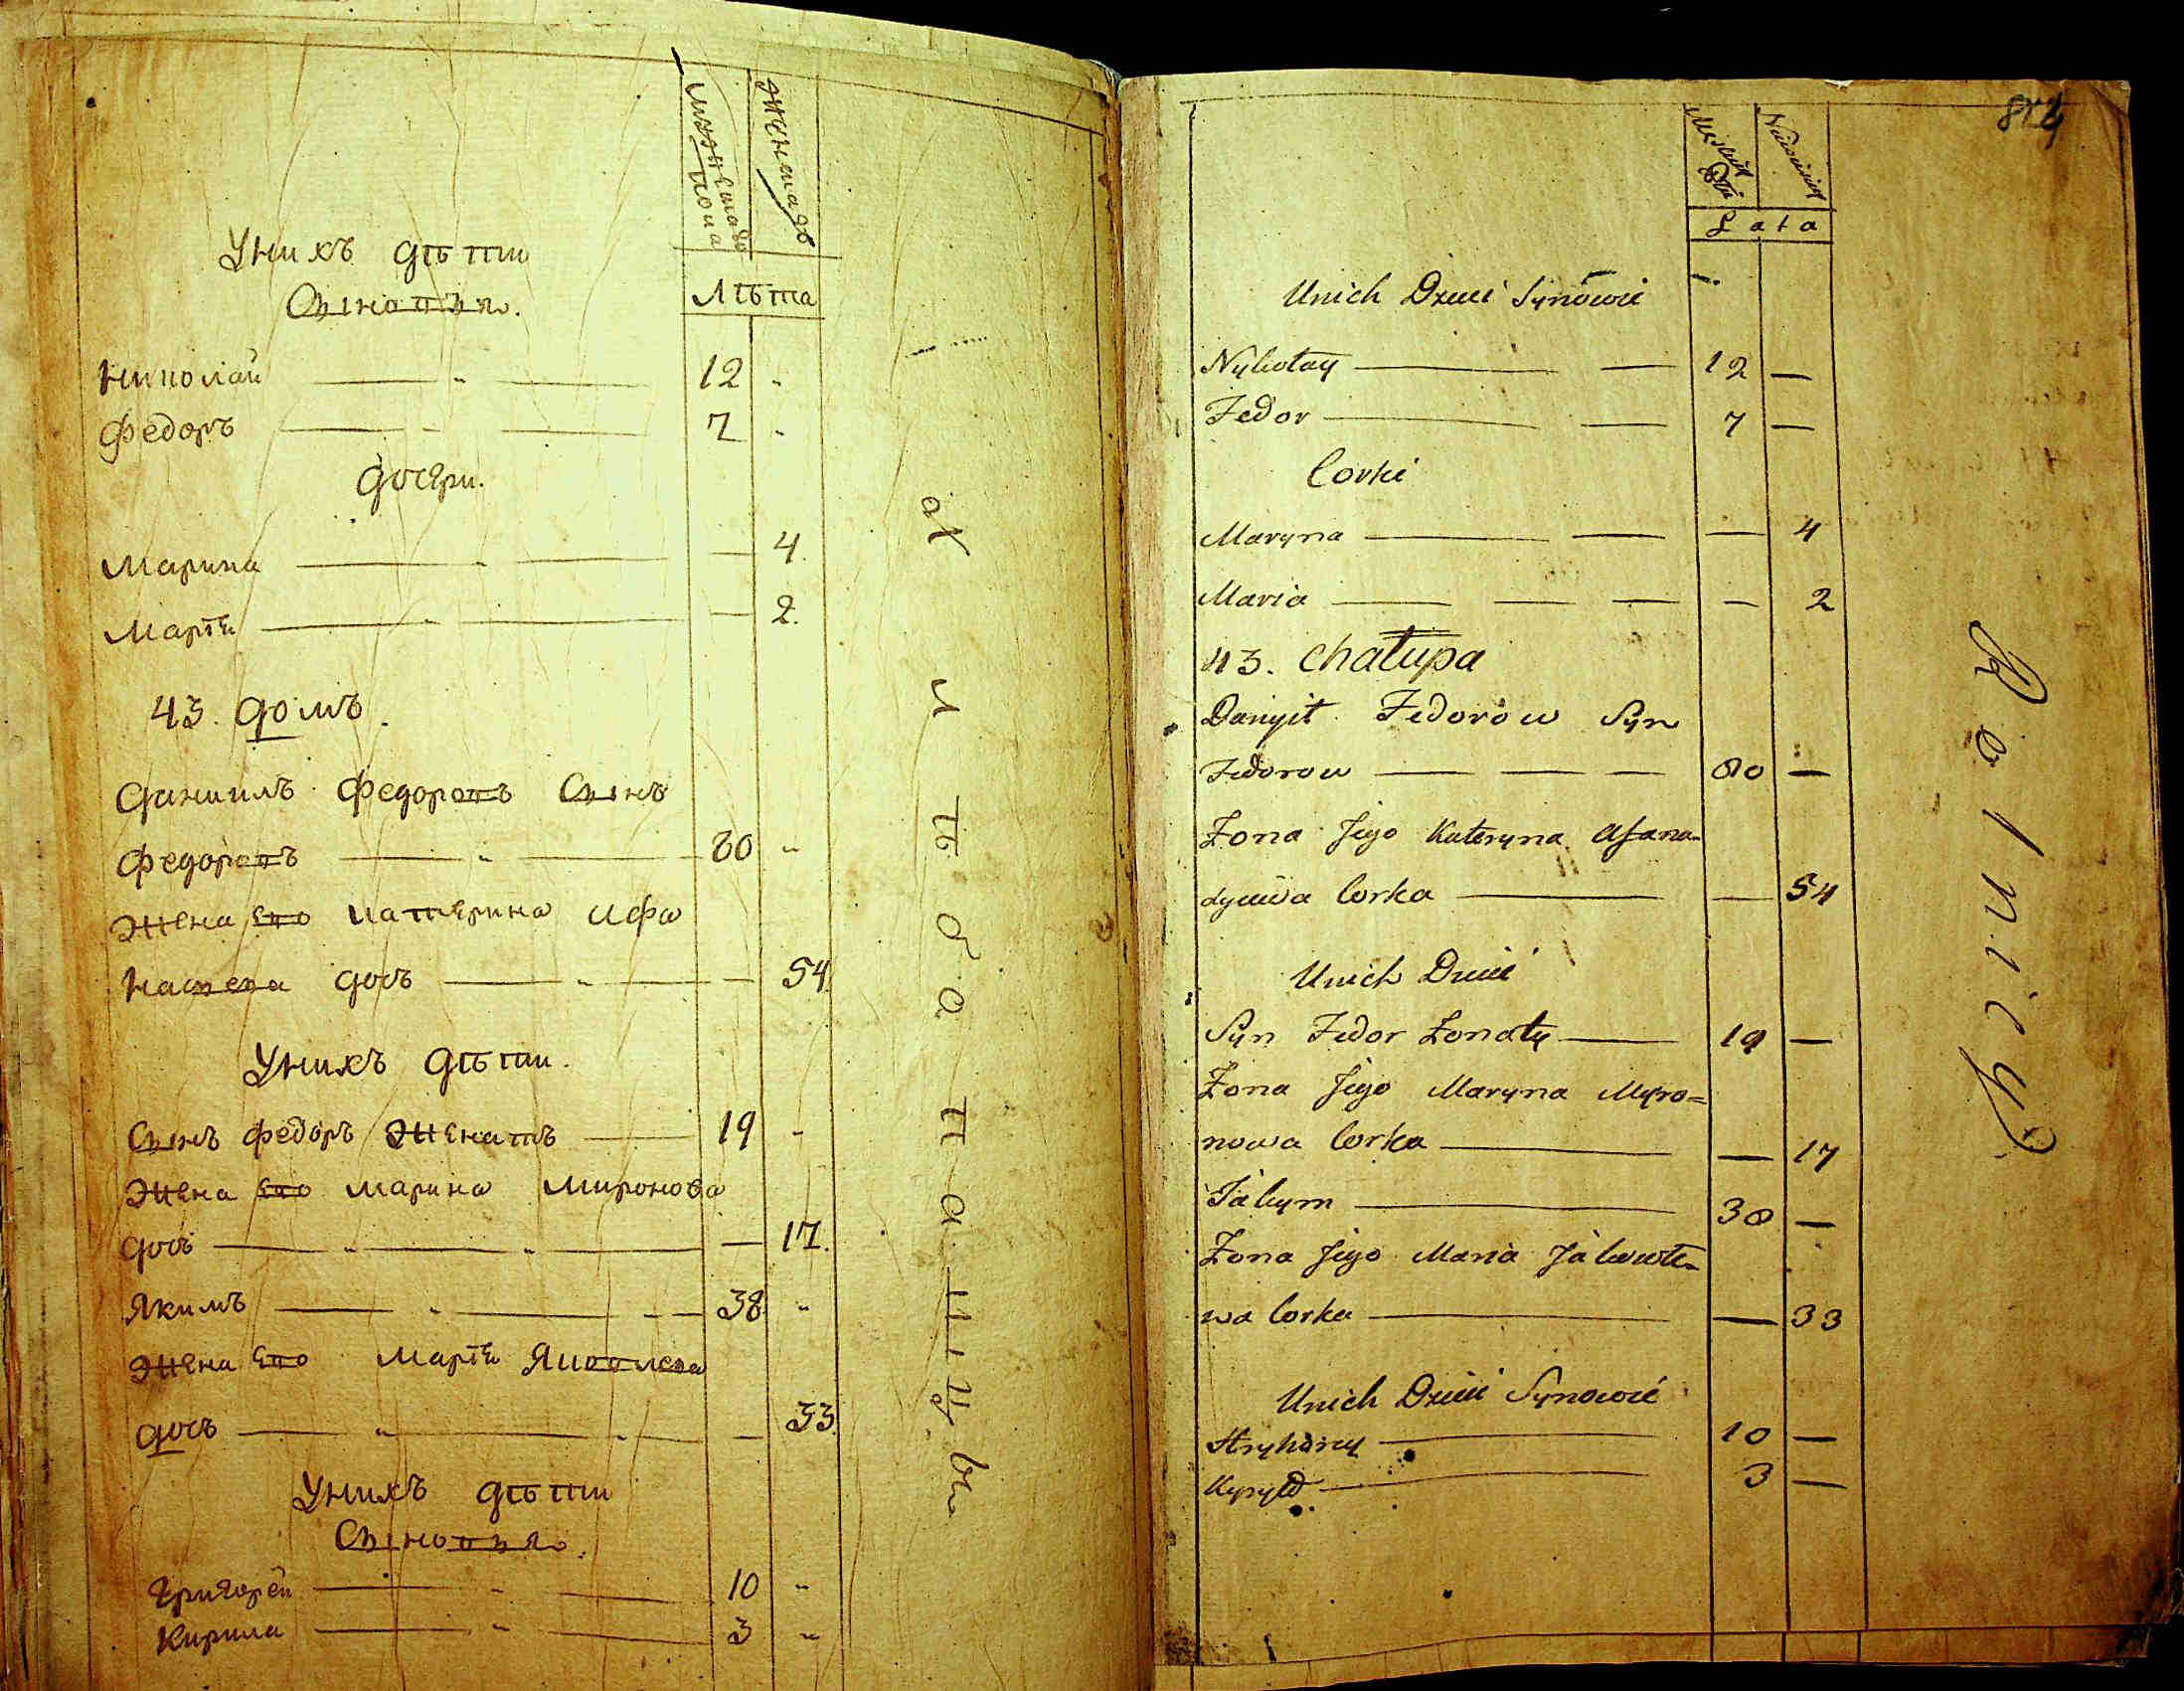 мужеска
пола
женска
Лѣта
У них дѣти
Сыновья.
Николай 12
Федоръ 7
Дочери.
Марина 4
Марія 2.
43. домъ.
Даниилъ Федоровъ Сынъ
Федоровъ 80
Жена Его Катерина Афа
насьева дочь 54.
У нихъ дѣти.
Сынъ Федоръ Женатъ 19
Жена Его Марина Миронова
дочь 17.
Якимъ 38
Жена Его Марія Яковлева
дочь 33
У нихъ дѣти
Сыновья.
Григорей 10
Кирила 3
Lata
Unich Dzieci Synowie
Nykołay 12
Fedor 7
Corki
Maryna 4
Maria 2
43. Chałupa
Danyił Fedorow Syn
Fedorow 80
Żona Jego Kateryna Afana-
Corka 54
Unich Dzieci
Syn Fedor Żonaty 19
Żona Jego Maryna Myro=
nowa Corka 17
Jakym 38
Żona Jego Maria Jakowle-
wa Corka 33
Unich Dzieci Synowie
Hryhorey 10
Kyryło 3
Rolnicy